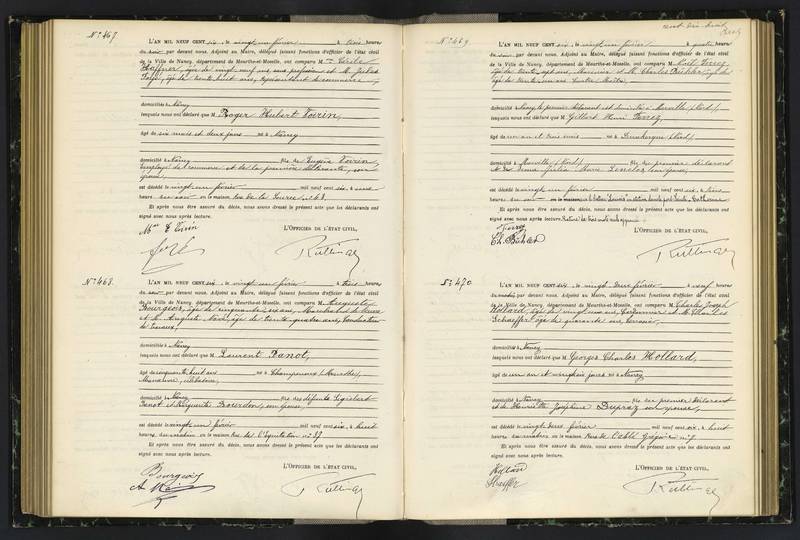 N° 467
L'AN MIL NEUF CENT six, le vingt un février à trois heures
du soir par devant nous, Adjoint au Maire, délégué faisant fonctions d'officier de l'état civil
de la Ville de Nancy, département de Meurthe-et-Moselle, ont comparu M Cécile
Hoffner, âgée de vingt neuf ans, sans profession et M. Jules
âgé de trente huit ans, représentant de commerce,
domiciliés à Nancy
lesquels nous ont déclaré que M Roger Hubert Voirin,
âgé de six mois et deux jours né à Nancy
domicilié à Nancy fils de Eugène Voirin,
employé de commerce et de la première déclarante, son
épouse,
est décédé le vingt un février mil neuf cent six, à
heures du soir en la maison rue de la Source, 48,
Et après nous être assuré du décès, nous avons dressé le présent acte que les déclarants ont
signé avec nous après lecture.
L'OFFICIER DE L'ÉTAT CIVIL,
N° 468.
L'AN MIL NEUF CENT six, le vingt un février à trois heures
du soir par devant nous, Adjoint au Maire, délégué faisant fonctions d'officier de l'état civil
de la Ville de Nancy, département de Meurthe-et-Moselle, ont comparu M. Auguste
Bourgeois, âgé de cinquante six ans,
et M. Auguste âgé de trente quatre ans, Conducteur
de travaux,
domiciliés à Nancy
lesquels nous ont déclaré que M Laurent Danot,
âgé de cinquante huit ans né à Champenoux (Meurthe),
Manœuvre, célibataire,
domicilié à Nancy fils des défunts
Danot et Marguerite Bourdon, son épouse,
est décédé le vingt un février mil neuf cent six, à huit
heures du matin en la maison rue de l'Equitation n° 27
Et après nous être assuré du décès, nous avons dressé le présent acte que les déclarants ont
signé avec nous après lecture.
L'OFFICIER DE L'ÉTAT CIVIL,
Bourgeois
N° 469
L'AN MIL NEUF CENT six, le vingt un février à quatre heures
du soir par devant nous, Adjoint au Maire, délégué faisant fonctions d'officier de l'état civil
de la Ville de Nancy, département de Meurthe-et-Moselle, ont comparu M.
âgé de trente sept ans, et M. Charles
âgé de trente ans,
domiciliés à Nancy, le premier déclarant est domicilié à (Nord),
lesquels nous ont déclaré que M Gilbert Henri
âgé de un an et trois mois né à Dunkerque (Nord),
domicilié à (Nord) fils du premier déclarant
et de Julia Marie son épouse,
est décédé le vingt un février mil neuf cent six, à
heures du soir en
Et après nous être assuré du décès, nous avons dressé le présent acte que les déclarants ont
signé avec nous après lecture.
L'OFFICIER DE L'ÉTAT CIVIL,
N° 470
L'AN MIL NEUF CENT six, le vingt deux février à neuf heures
du matin, par devant nous, Adjoint au Maire, délégué faisant fonctions d'officier de l'état civil
de la Ville de Nancy, département de Meurthe-et-Moselle, ont comparu M. Charles Joseph
Hollard, âgé de vingt cinq ans, Cordonnier et M. Charles
Schaeffer âgé de quarante ans,
domiciliés à Nancy
lesquels nous ont déclaré que M Georges Charles Hollard,
âgé de un an et vingt six jours né à Nancy
domicilié à Nancy fils du premier déclarant
et de Henriette Joséphine Duprez son épouse,
est décédé le vingt deux février mil neuf cent six, à huit
heures du matin, en la maison rue de l'abbé Grégoire n° 7
Et après nous être assuré du décès, nous avons dressé le présent acte que les déclarants ont
signé avec nous après lecture.
L'OFFICIER DE L'ÉTAT CIVIL,